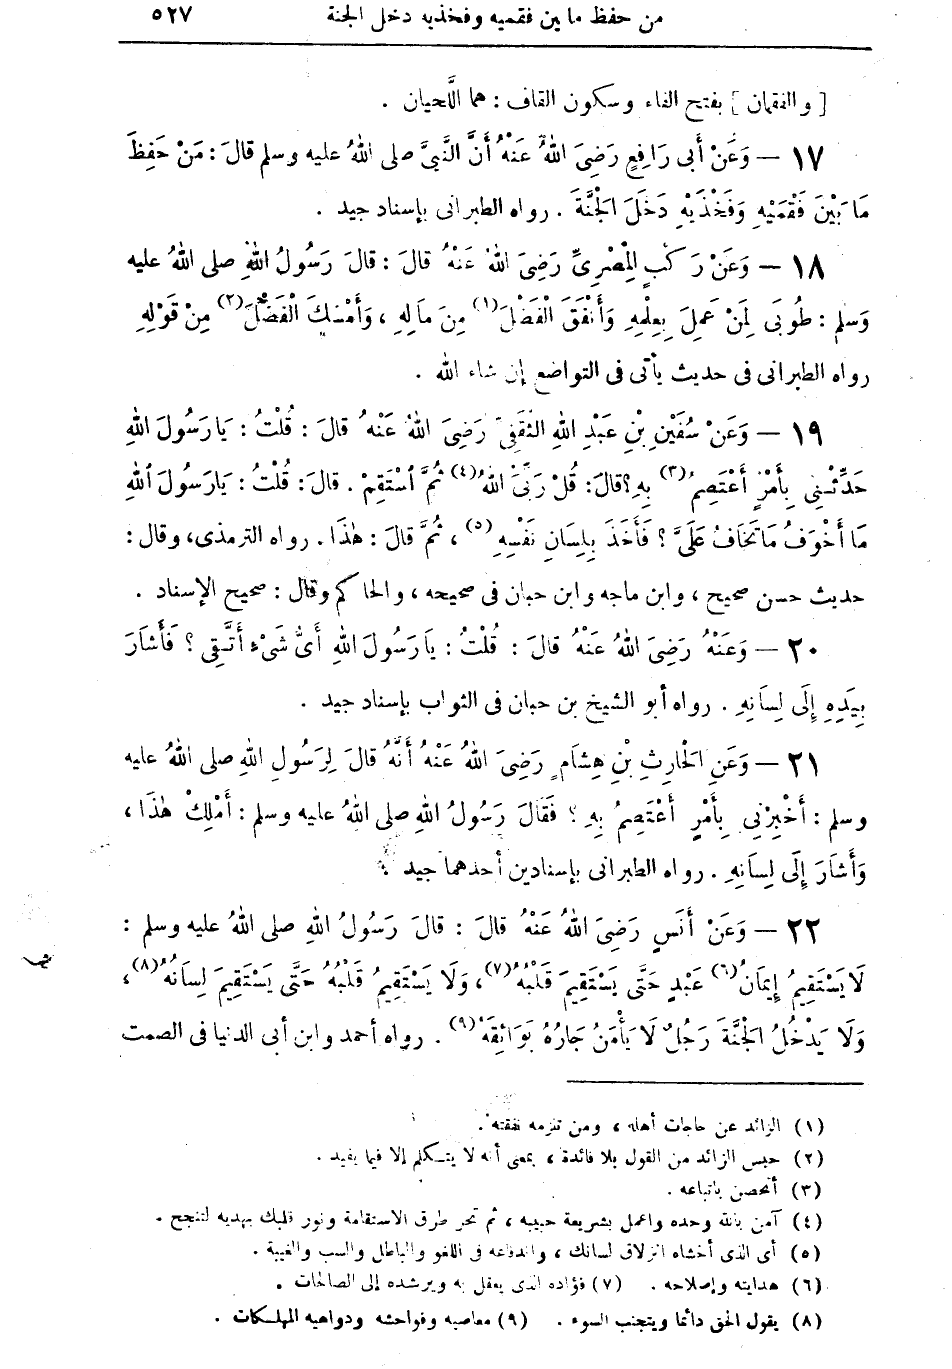 من حفظ ما بين فقميه وفخذيه دخل الجنة ٥٢٧
[ والفقمان ] بفتح الفاء وسكون القاف : هما اللَّحيان .
١٧ — وَعَنْ أَبِى رَافِعٍ رَضِىَ اللهُ عَنْهُ أَنَّ النَّبِىَّ صلى اللهُ عليه وسلم قالَ : مَنْ حَفِظَ
مَا بَيْنَ فَقْمَيْهِ وَفَخْذَيْهِ دَخَلَ الْجَنَّةَ . رواه الطبرانى بإسناد جيد .
١٨ — وَعَنْ رَكْبٍ الْمِصْرِىِّ رَضِىَ اللهُ عَنْهُ قالَ : قالَ رَسُولُ اللهِ صلى اللهُ عليه
وَسلم : طُوبَى لِمَنْ عَمِلَ بِعِلْمِهِ وَأَنْفَقَ الْفَضْلَ (١) مِنَ مَالِهِ ، وَأَمْسَكَ الْفَضْلَ (٢) مِنْ قَوْلِهِ
رواه الطبرانى فى حديث يأتى فى التواضع إن شاء الله .
١٩ — وَعَنْ سُفْيَنِ بْنِ عَبْدِ اللهِ الثَّقَفِىِّ رَضِىَ اللهُ عَنْهُ قالَ : قُلْتُ : يَا رَسُولَ اللهِ
حَدِّثْنِى بِأَمْرٍ أَعْتَصِمُ (٣) بِهِ ؟ قالَ : قُلْ رَبِّىَ اللهُ (٤) ثُمَّ اسْتَقِمْ . قالَ : قُلْتُ : يَارَسُولَ اللهِ
مَا أَخْوَفُ مَا تَخَافُ عَلَىَّ ؟ فَأَخَذَ بِلِسَانِ نَفْسِهِ (٥) ، ثُمَّ قالَ : هٰذَا . رواه الترمذى، وقال :
حديث حسن صحيح ، وابن ماجه وابن حبان فى صحيحه ، والحاكم وقال : صحيح الإسناد .
٢٠ — وَعَنْهُ رَضِىَ اللهُ عَنْهُ قالَ : قُلْتُ : يَا رَسُولَ اللهِ أَىُّ شَىْءٍ أَتَّقِى ؟ فَأَشَارَ
بِيَدِهِ إِلَى لِسَانِهِ . رواه أبو الشيخ بن حبان فى الثواب بإسناد جيد .
٢١ — وَعَنِ الْحَارِثِ بْنِ هِشَامٍ رَضِىَ اللهُ عَنْهُ أَنَّهُ قالَ لِرَسُولِ اللهِ صلى اللهُ عليه
وسلم : أَخْبِرْنِى بِأَمْرٍ أَعْتَصِمُ بِهِ ؟ فَقَالَ رَسُولُ اللهِ صلى اللهُ عليه وسلم : أَمْلِكْ هٰذَا ،
وَأَشَارَ إِلَى لِسَانِهِ . رواه الطبرانى بإسنادين أحدهما جيد .
٢٢ — وَعَنْ أَنَسٍ رَضِىَ اللهُ عَنْهُ قالَ : قالَ رَسُولُ اللهِ صلى اللهُ عليه وسلم :
لَا يَسْتَقِيمُ إِيمَانُ (٦) عَبْدٍ حَتَّى يَسْتَقِيمَ قَلْبُهُ (٧) ، وَلَا يَسْتَقِيمُ قَلْبُهُ حَتَّى يَسْتَقِيمَ لِسَانُهُ (٨) ،
وَلَا يَدْخُلُ الْجَنَّةَ رَجُلٌ لَا يَأْمَنُ جَارُهُ بَوَائِقَهُ (٩) . رواه أحمد وابن أبى الدنيا فى الصمت
(١) الزائد عن حاجات أهله ، ومن تلزمه نفقته .
(٢) حبس الزائد من القول بلا فائدة ، بمعنى أنه لا يتكلم إلا فيما يفيد .
(٣) أتحصن باتباعه .
(٤) آمن بالله وحده واعمل بشريعة حبيبه ، ثم تحر طرق الاستقامة ونور قلبك بهديه لتنجح .
(٥) أى الذى أخشاه انزلاق لسانك ، واندفاعه فى اللغو والباطل والسب والغيبة .
(٦) هدايته وإصلاحه . (٧) فؤاده الذى يعقل به ويرشده إلى الصالحات .
(٨) يقول الحق دائما ويتجنب السوء . (٩) معاصيه وفواحشه ودواهيه المهلكات .